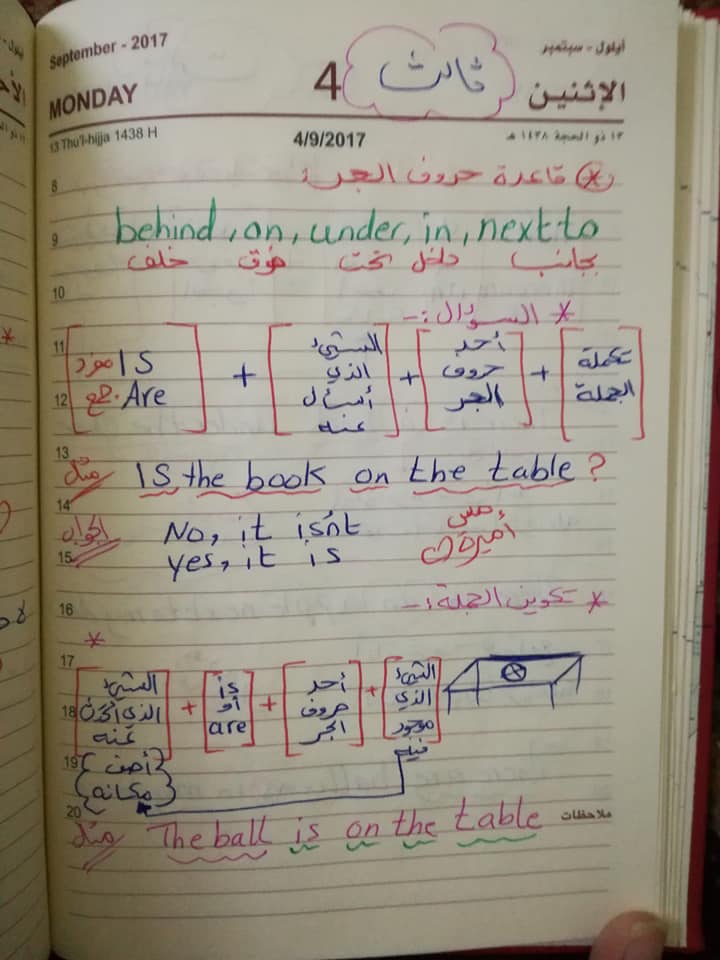 September - 2017
أيلول - سبتمبر
ثالث
MONDAY
4
الإثنين
13 Thu'l-hijja 1438 H
4/9/2017
١٣ ذو الحجة ١٤٣٨ هـ
* قاعدة حروف الجر :
8
9 behind, on, under, in, next to
خلف فوق تحت داخل بجانب
10
* السؤال :-
11
12
[IS مفرد Are جمع] + [الشيء الذي أسأل عنه] + [أحد حروف الجر] + [تكملة الجملة]
13
مثال IS the book on the table ?
14
الجواب No, it isn't
15 yes, it is
مس أميرة
16 * تكوين الجملة :-
*
17
18
[الشيء الذي أتحدث عنه] + [is أو are] + [أحد حروف الجر] + [الشيء الذي موجود فيه]
19 {أصف
مكانه}
20
ملاحظات
مثال The ball is on the table